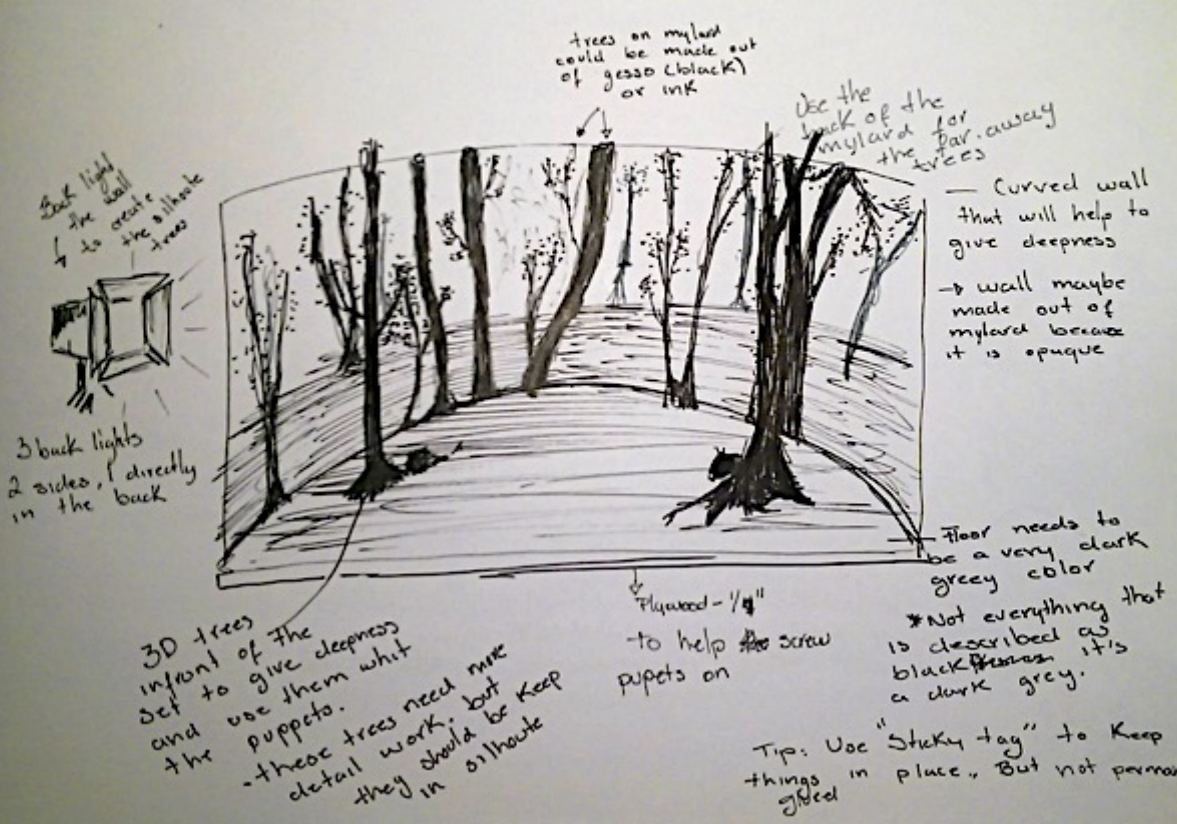 trees on mylard
could be made out
of gesso (black)
or ink
Use the
back of the
mylard for
the far.away
trees
Back light
the wall
to create
the silhoute
trees
— Curved wall
that will help to
give deepness
→ wall maybe
made out of
mylard because
it is opaque
3 back lights
2 sides, 1 directly
in the back
Floor needs to
be a very dark
greey color
*Not everything that
is described as
black it's
a dark grey.
Plywood - 1/4"
to help screw
pupets on
3D trees
infront of the
set to give deepness
and use them whit
the puppets.
- these trees need more
detail work, but
they should be keep
in silhoute
Tip: Use "Sticky tag" to Keep
things in place., But not perman
glued